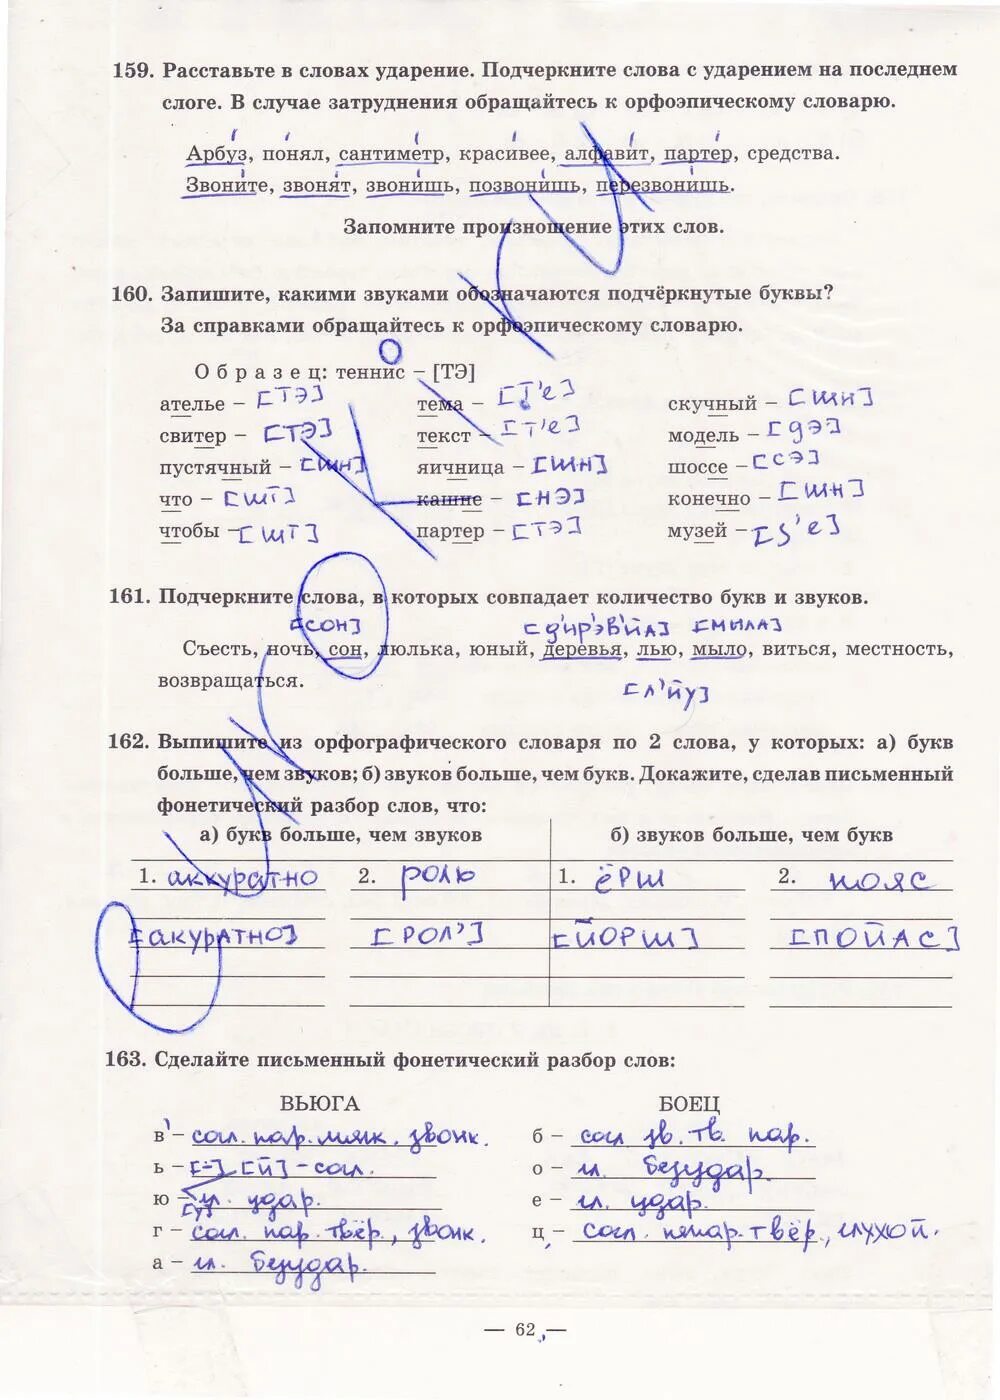 159. Расставьте в словах ударение. Подчеркните слова с ударением на последнем
слоге. В случае затруднения обращайтесь к орфоэпическому словарю.
Арбуз, понял, сантиметр, красивее, алфавит, партер, средства.
Звоните, звонят, звонишь, позвонишь, перезвонишь.
Запомните произношение этих слов.
160. Запишите, какими звуками обозначаются подчёркнутые буквы?
За справками обращайтесь к орфоэпическому словарю.
О б р а з е ц: теннис – [ТЭ]
ателье – [ТЭ] тема – [Т'е] скучный – [шн]
свитер – [ТЭ] текст – [Т'е] модель – [дЭ]
пустячный – [шн] яичница – [шн] шоссе – [сЭ]
что – [шТ] кашне – [НЭ] конечно – [шн]
чтобы – [шТ] партер – [ТЭ] музей – [з'е]
161. Подчеркните слова, в которых совпадает количество букв и звуков.
[СОН] [д'ир'эв'йа] [мила]
Съесть, ночь, сон, люлька, юный, деревья, лью, мыло, виться, местность,
возвращаться.
[л'йу]
162. Выпишите из орфографического словаря по 2 слова, у которых: а) букв
больше, чем звуков; б) звуков больше, чем букв. Докажите, сделав письменный
фонетический разбор слов, что:
а) букв больше, чем звуков б) звуков больше, чем букв
1. аккуратно 2. роль 1. ёрш 2. пояс
[акуратно] [рол'] [йорш] [пойас]
163. Сделайте письменный фонетический разбор слов:
ВЬЮГА БОЕЦ
в' – согл. пар. мягк. звонк. б – согл. зв. тв. пар.
ь – [-] [й] – согл. о – гл. безудар.
ю – гл. удар. е – гл. удар.
[у]
г – согл. пар. твёр., звонк. ц – согл. непар. твёр., глухой.
а – гл. безудар.
— 62 —